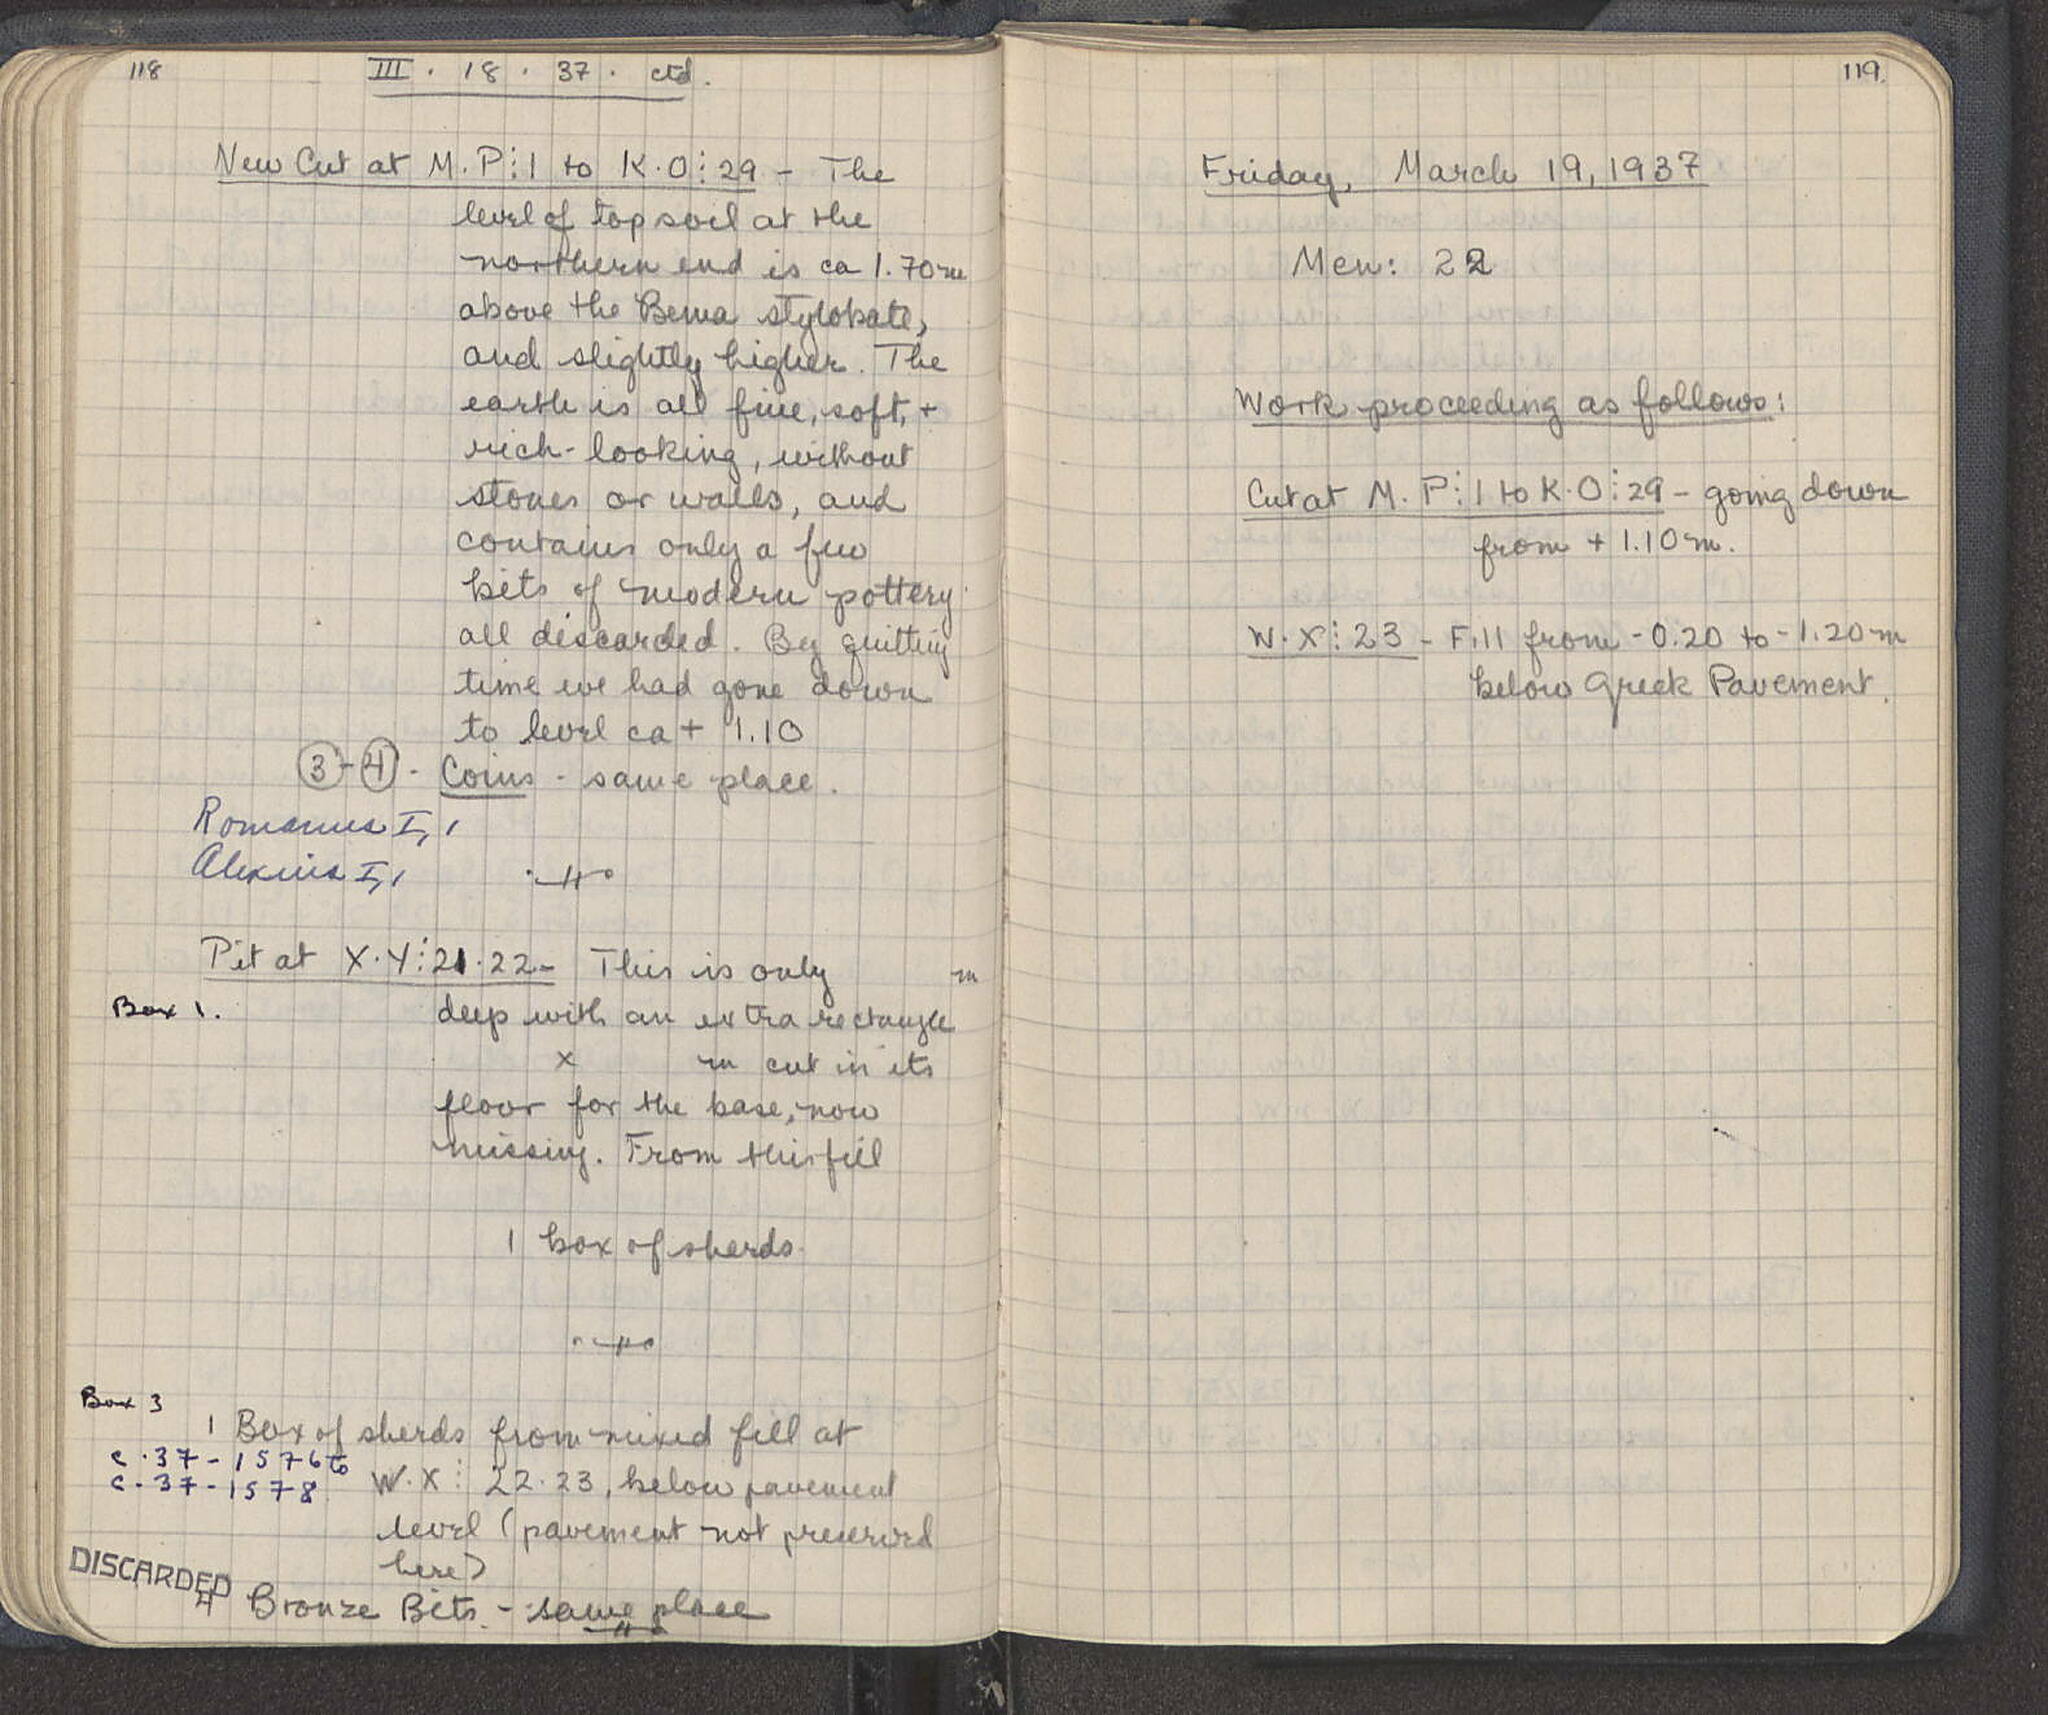 118
III. 18. 37. ctd.
New Cut at M.P⋮1 to K.O⋮29 - The
level of top soil at the
northern end is ca 1.70 m
above the Bema stylobate,
and slightly higher. The
earth is all fine, soft, +
rich-looking, without
stones or walls, and
contains only a few
bits of modern pottery
all discarded. By quitting
time we had gone down
to level ca + 1.10
3-4. Coins - same place.
Romanus I, 1
Alexius I, 1
Pit at X.Y⋮21.22 - This is only m
Box 1.
deep with an extra rectangle
x m cut in its
floor for the base, now
missing. From this fill
1 box of sherds.
Box 3
1 Box of sherds from mixed fill at
C.37-1576 to
C-37-1578
W.X⋮22.23, below pavement
level (pavement not preserved
here)
DISCARDED
4 Bronze Bits - same place
119.
Friday, March 19, 1937
Men: 22
Work proceeding as follows:
Cut at M.P⋮1 to K.O⋮29 - going down
from + 1.10 m.
W.X⋮23 - Fill from -0.20 to -1.20 m
below Greek Pavement.